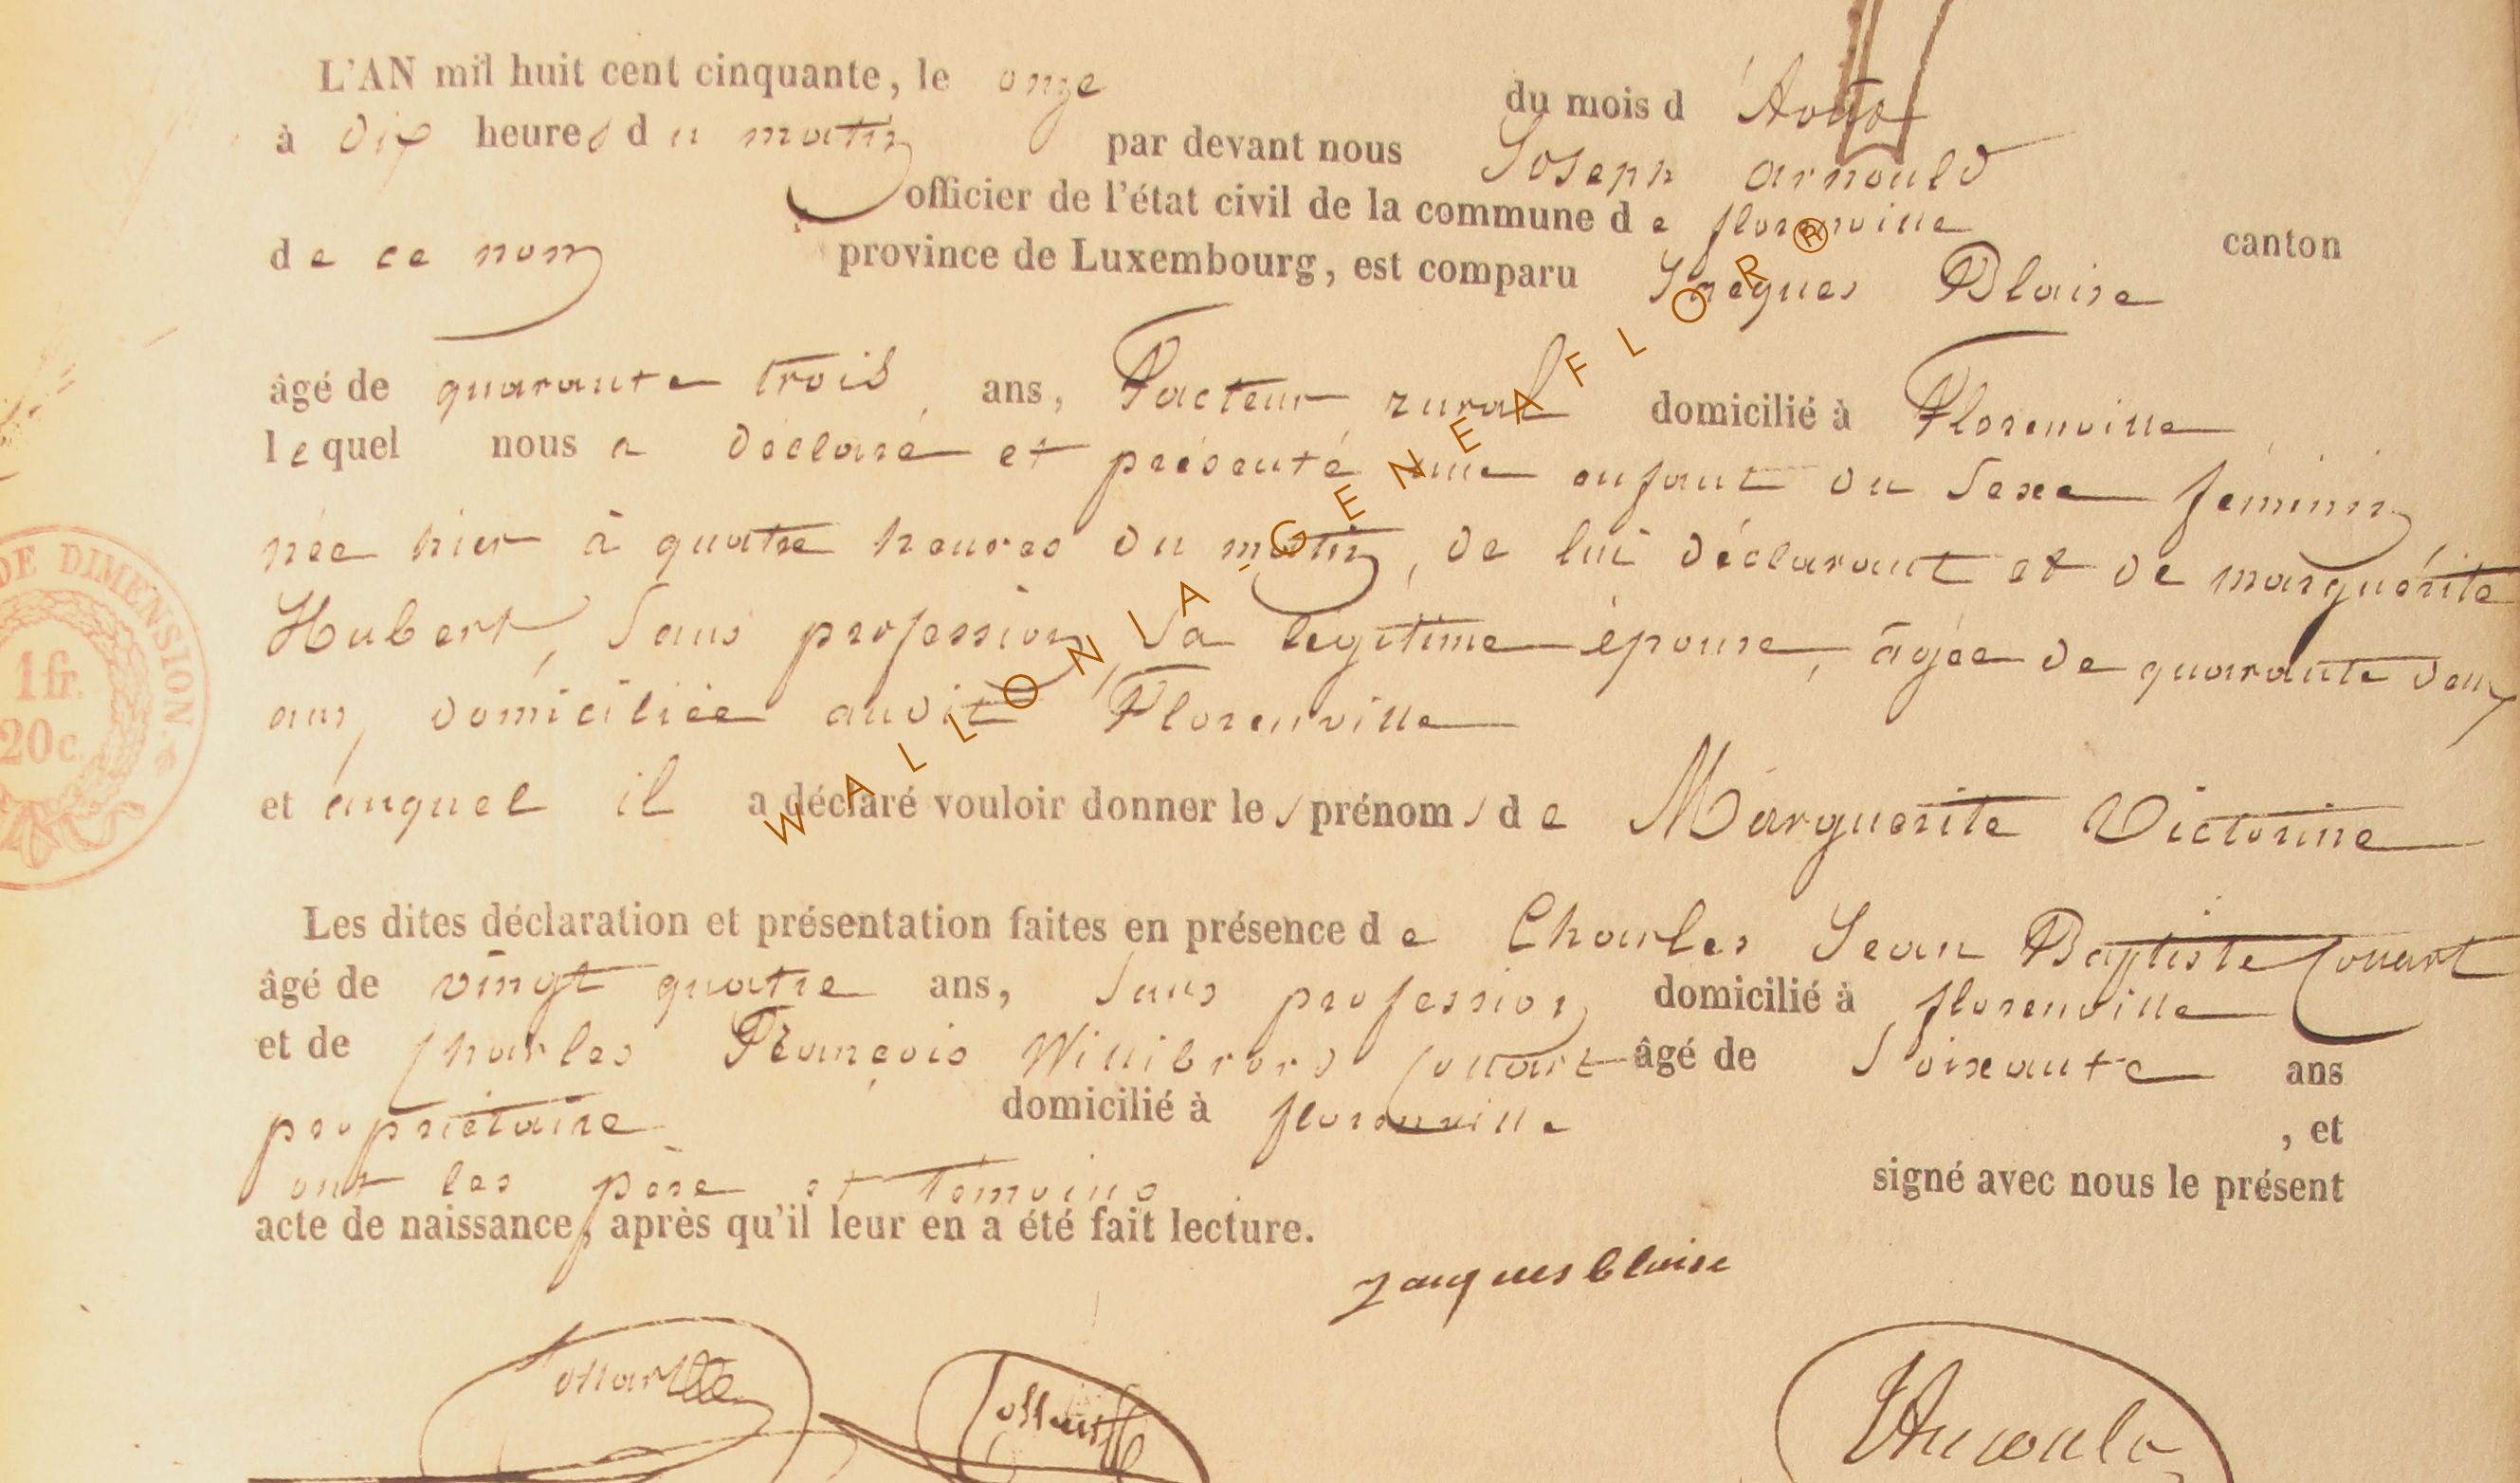 L'AN mil huit cent cinquante, le onze du mois d'Août
à dix heures du matin par devant nous Joseph arnould
officier de l'état civil de la commune de florenville canton
de ce nom province de Luxembourg, est comparu Jacques Blaise
âgé de quarante trois ans, Facteur rural domicilié à Florenville,
lequel nous a déclaré et présenté une enfant du Sexe féminin
née hier à quatre heures du matin, de lui déclarant et de marguérite
Hubert, Sans profession, Sa légitime épouse, âgée de quarante deux
ans, domiciliée audit Florenville
et auquel il a déclaré vouloir donner les prénoms de Marguerite Victorine
Les dites déclaration et présentation faites en présence de Charles Jean Baptiste
âgé de vingt quatre ans, Sans profession domicilié à florenville
et de Charles François Willibrord âgé de Soixante ans
propriétaire domicilié à florenville, et
ont les père et témoins signé avec nous le présent
acte de naissance, après qu'il leur en a été fait lecture.
jacques blaise
DE DIMENSION.
1 fr.
20 c.
WALLONIA-GENEAFLOR®